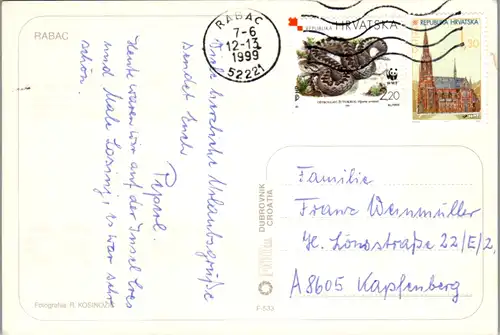 RABAC
RABAC
7-6
12-13
1999
52221
HRVATSKA
2,20
WWF
REPUBLIKA HRVATSKA
Viele herzliche Urlaubsgrüße
sendet Euch
Heute waren wir auf der Insel Cres
und Mali Losinj, es war sehr
schön.
DUBROVNIK
CROATIA
Fotografija: R. KOSINOŽIĆ
F-533
Familie
Franz Weinmüller
H. Lönsstraße 22/E/2,
A 8605 Kapfenberg